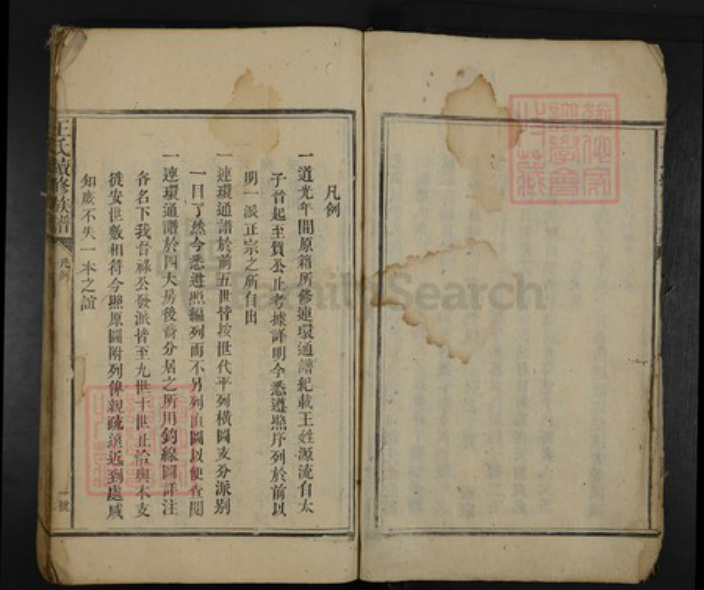 凡例
一道光年間原籍所修連環通譜紀載王姓源流自太
子晉起至質公止考據詳明今悉遵照序列於前以
明一派正宗之所自出
一連環通譜於前五世皆按世代平列橫圖支分派別
一目了然今悉遵照編列而不另列直圖以便查閱
一連環通譜於四大房後裔分居之所用鈎線圖詳注
各名下我公發派皆至九世十世止恰與本支
從安世數相符今照原圖附列俾親疏遠近到處咸
知庶不失一本之誼
王氏續修族譜
凡例
一號
Search